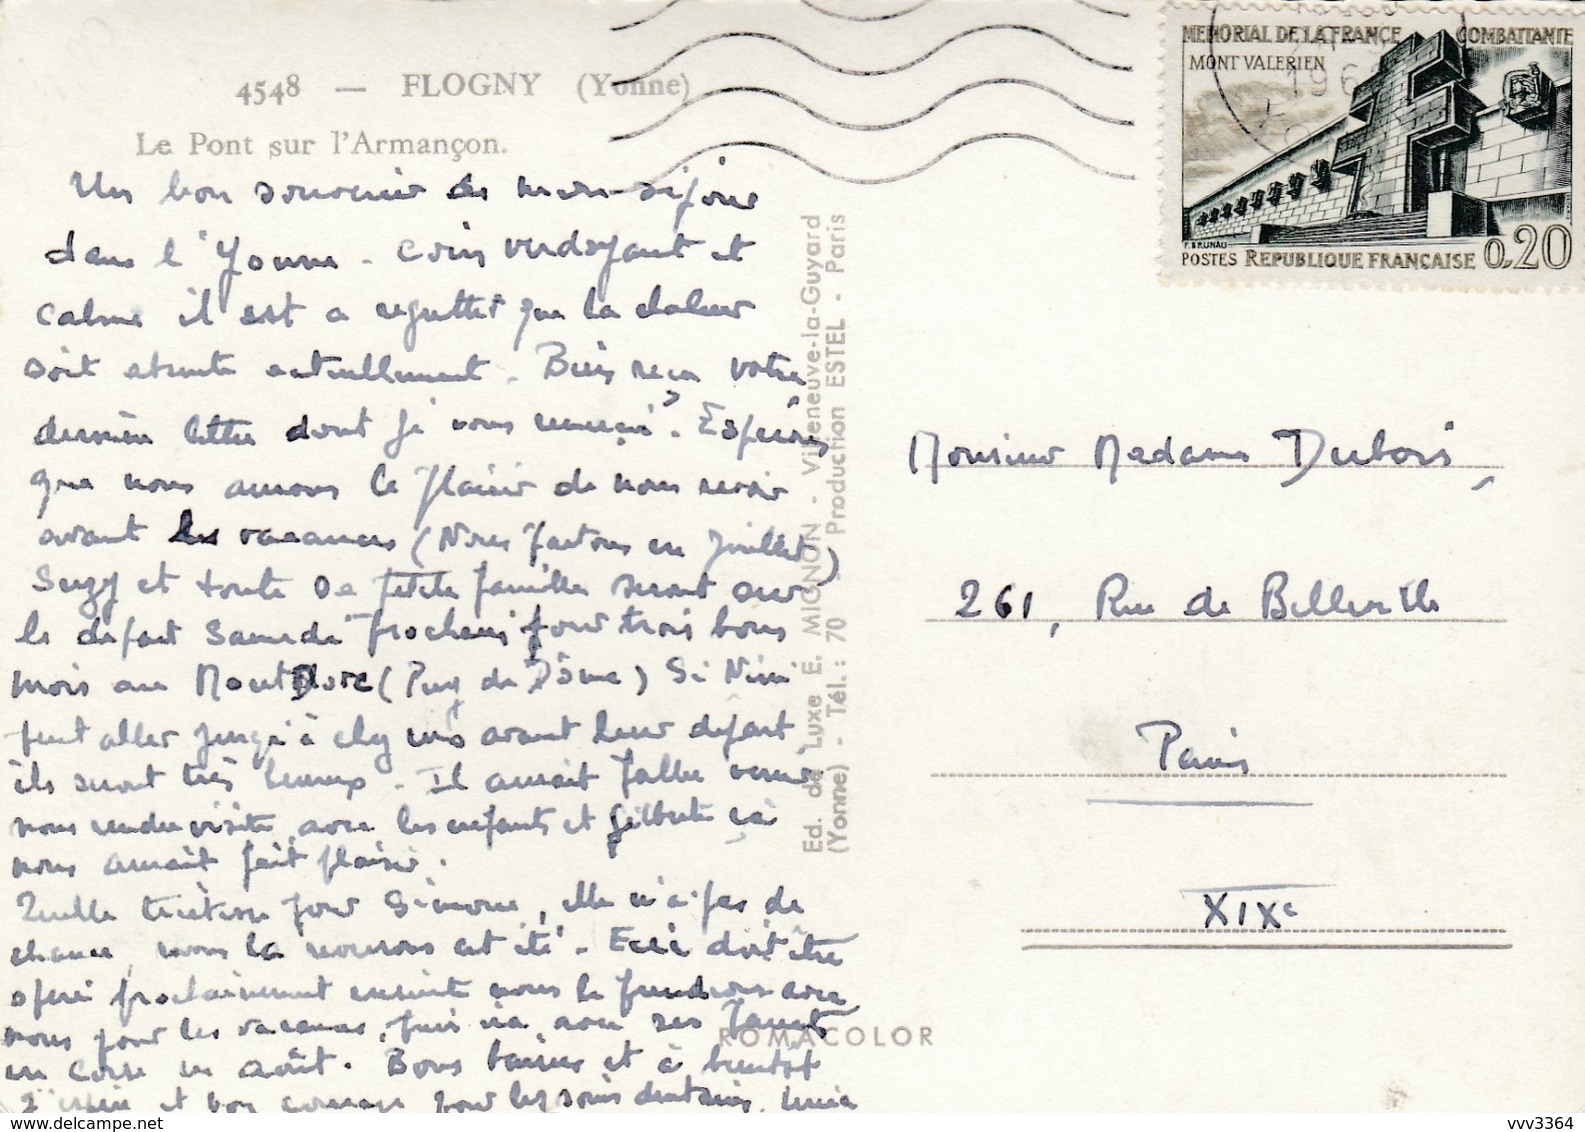 4548 — FLOGNY (Yonne)
Le Pont sur l'Armançon.
Un bon souvenir de mon séjour
dans l'Yonne - coin verdoyant et
calme il est a regretter que la chaleur
soit absente actuellement. Bien reçu votre
dernière lettre dont je vous remercie. Espérons
que nous aurons le plaisir de nous revoir
avant les vacances (Nous partons en Juillet)
Suzy et toute sa petite famille seront sur
le départ Samedi prochain pour trois bons
mois au Mont Dore (Puy de Dôme) Si Nini
peut aller jusqu'à chez eux avant leur départ
ils seront très heureux. Il aurait fallu venir
nous rendre visite avec les enfants et Gilberte ça
nous aurait fait plaisir.
Quelle tristesse pour Simone, elle n'a pas de
chance, nous la verrons cet été. Elle doit être
opéré prochainement ensuite nous le prendrons avec
nous pour les vacances, puis ira avec ses
en Corse en août. Bons baisers et à bientôt
et bon courage pour les soins dentaires.
Ed. de Luxe E. MIGNON - Villeneuve-la-Guyard
(Yonne) - Tél.: 70 - Production ESTEL - Paris
ROMACOLOR
MEMORIAL DE LA FRANCE COMBATTANTE
MONT VALERIEN
196
P. BRUNAU
POSTES REPUBLIQUE FRANÇAISE 0,20
Monsieur Madame Dubois,
261, Rue de Belleville
Paris
XIXe
vvv3364